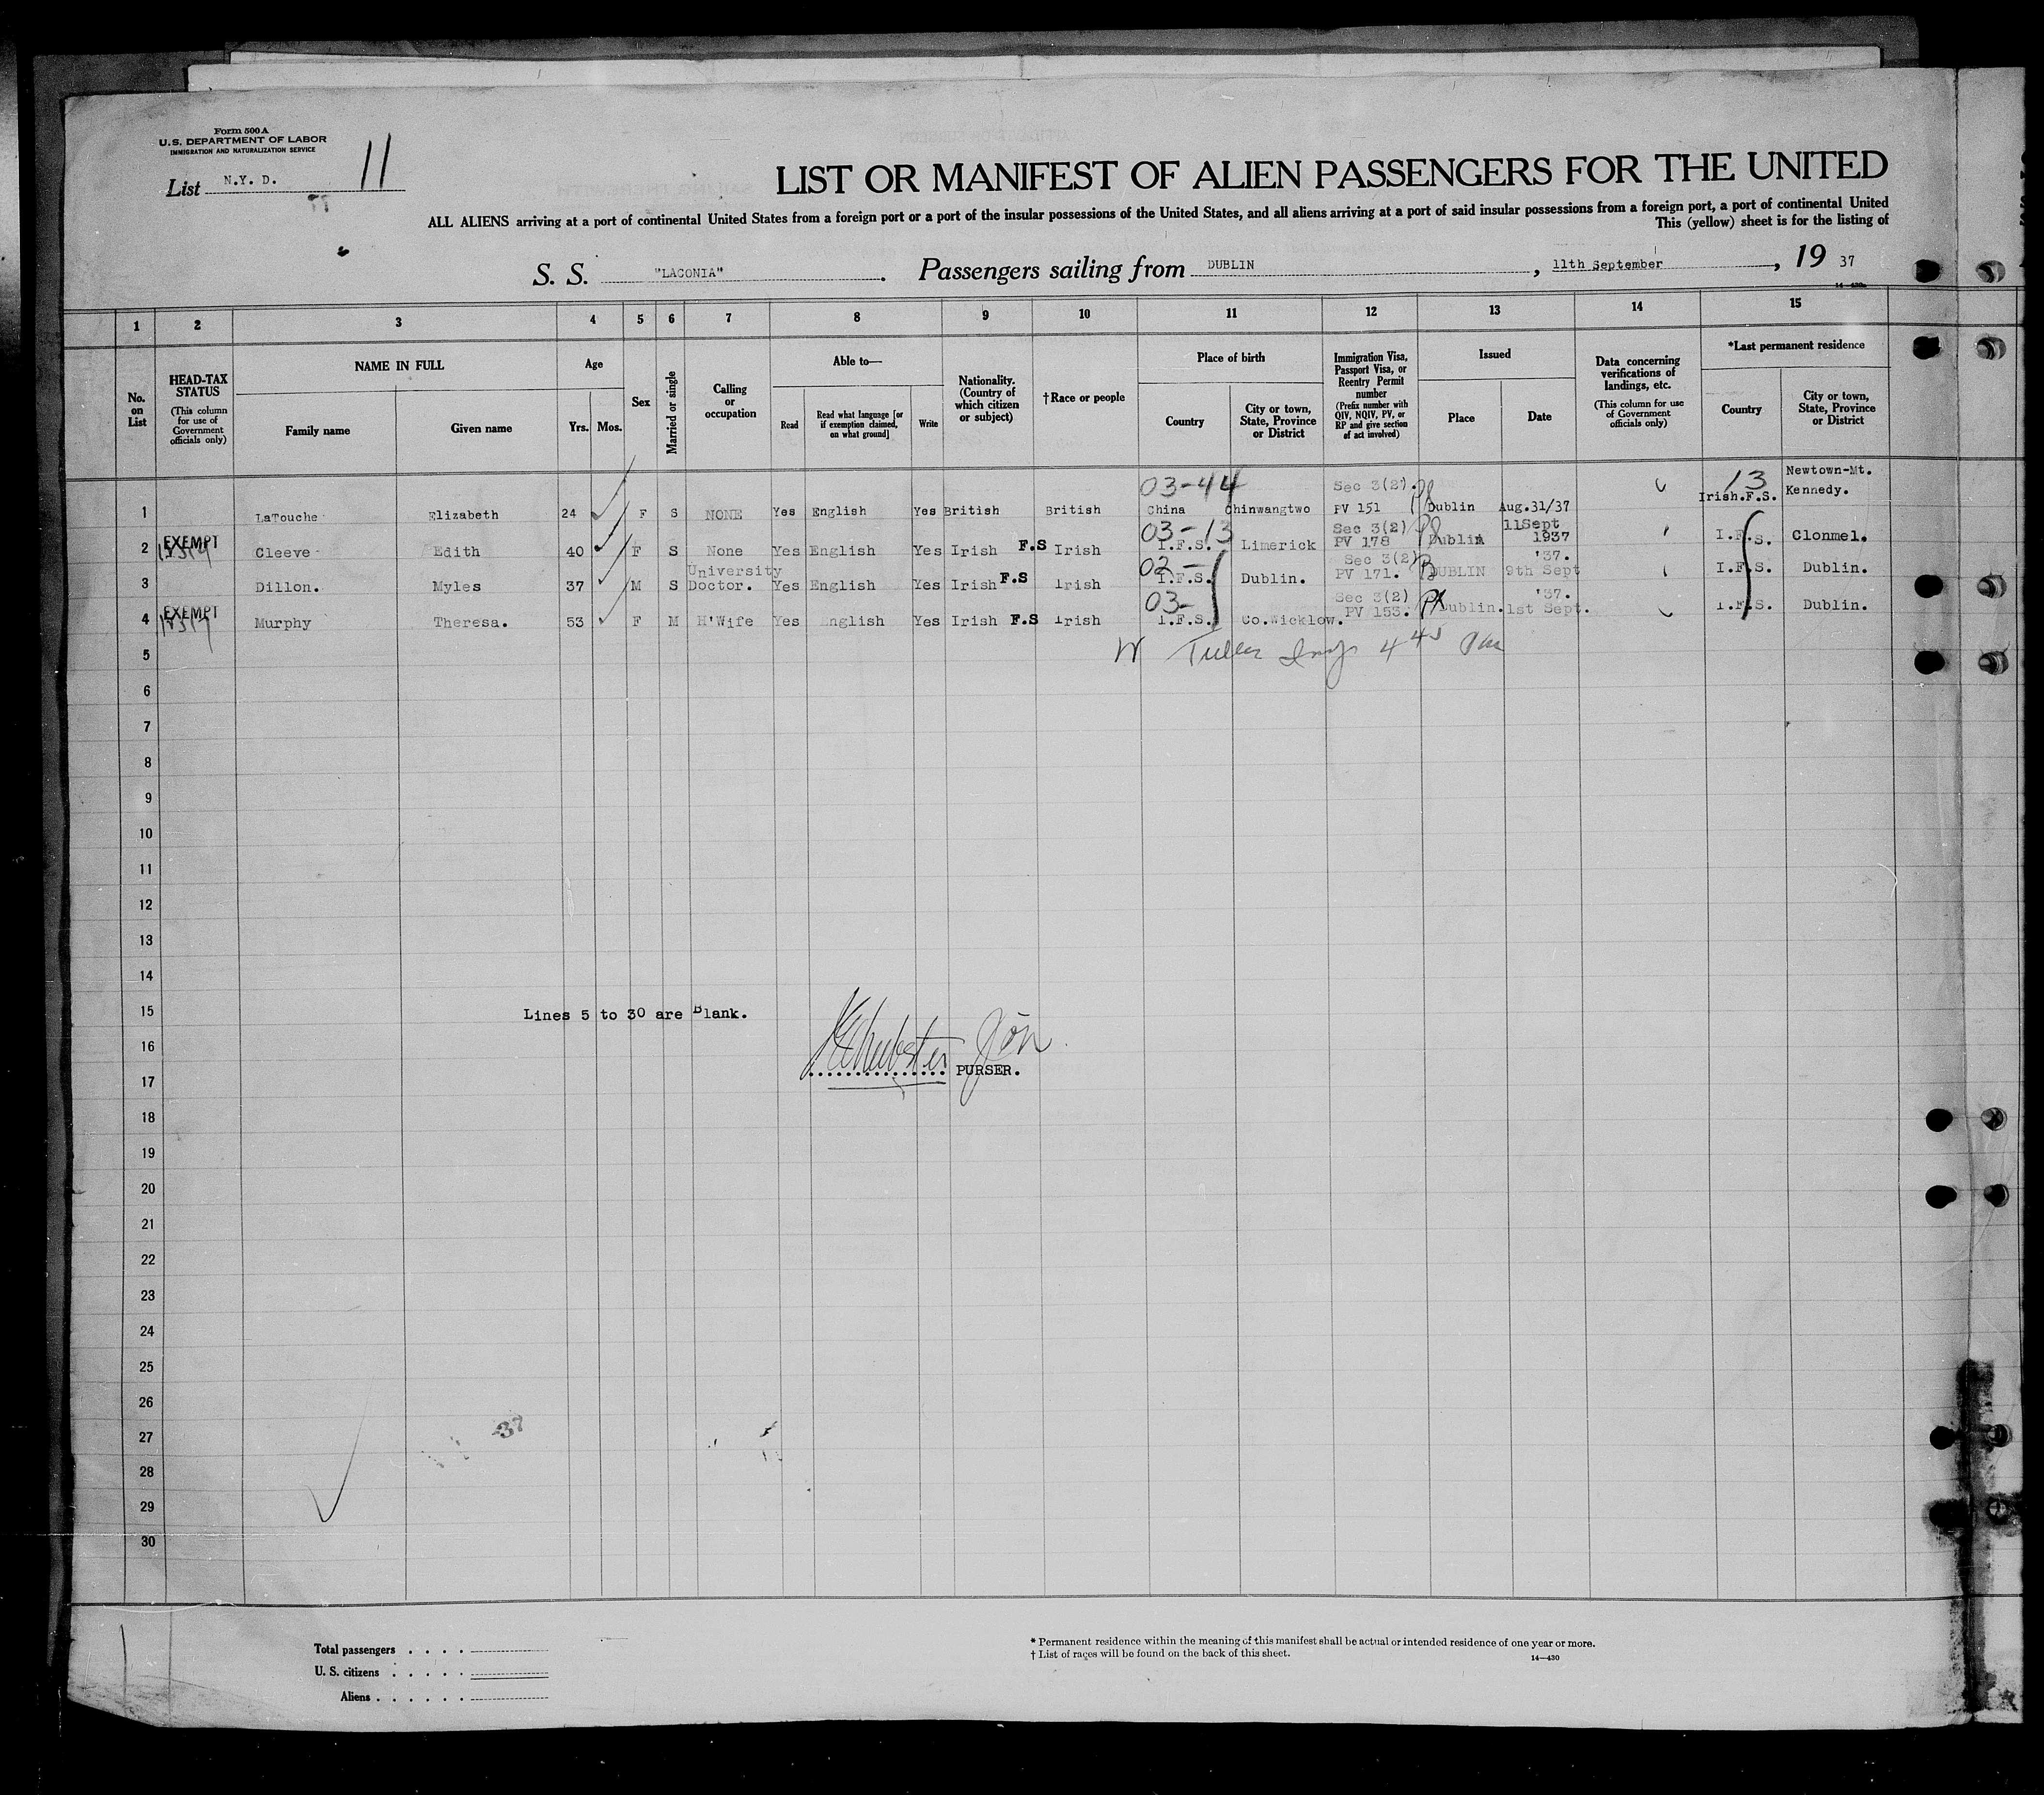 Form 500 A
U.S. DEPARTMENT OF LABOR
IMMIGRATION AND NATURALIZATION SERVICE
List N.Y. D. 11
LIST OR MANIFEST OF ALIEN PASSENGERS FOR THE UNITED
ALL ALIENS arriving at a port of continental United States from a foreign port or a port of the insular possessions of the United States, and all aliens arriving at a port of said insular possessions from a foreign port, a port of continental United
This (yellow) sheet is for the listing of
S. S. "LACONIA". Passengers sailing from DUBLIN, 11th September, 19 37
14—430
1 2 3 4 5 6 7 8 9 10 11 12 13 14 15
No. on List
HEAD-TAX STATUS
(This column for use of Government officials only)
NAME IN FULL
Family name
Given name
Age
Yrs. Mos.
Sex
Married or single
Calling or occupation
Able to—
Read
Read what language [or if exemption claimed, on what ground]
Write
Nationality. (Country of which citizen or subject)
†Race or people
Place of birth
Country
City or town, State, Province or District
Immigration Visa, Passport Visa, or Reentry Permit number
(Prefix number with QIV, NQIV, PV, or RP and give section of act involved)
Issued
Place
Date
Data concerning verifications of landings, etc.
(This column for use of Government officials only)
*Last permanent residence
Country
City or town, State, Province or District
03-44 Sec 3(2). 13 Newtown-Mt.
1 LaTouche Elizabeth 24 F S NONE Yes English Yes British British China Chinwangtwo PV 151 Dublin Aug.31/37 Irish.F.S. Kennedy.
03-13 Sec 3(2) 11Sept
2 EXEMPT Cleeve Edith 40 F S None Yes English Yes Irish F.S Irish I.F.S. Limerick PV 178 Dublin 1937 I.F.S. Clonmel.
University 02- Sec 3(2) '37.
3 Dillon. Myles 37 M S Doctor. Yes English Yes Irish F.S Irish I.F.S. Dublin. PV 171. DUBLIN 9th Sept I.F.S. Dublin.
03- Sec 3(2) '37.
4 EXEMPT Murphy Theresa. 53 F M H'Wife Yes English Yes Irish F.S Irish I.F.S. Co.Wicklow. PV 153. Dublin. 1st Sept. I.F.S. Dublin.
5
6
7
8
9
10
11
12
13
14
15 Lines 5 to 30 are Blank.
16
17 PURSER.
18
19
20
21
22
23
24
25
26
27 -37
28
29
30
Total passengers . . . .
U. S. citizens . . . . .
Aliens . . . . . .
* Permanent residence within the meaning of this manifest shall be actual or intended residence of one year or more.
† List of races will be found on the back of this sheet.
14—430